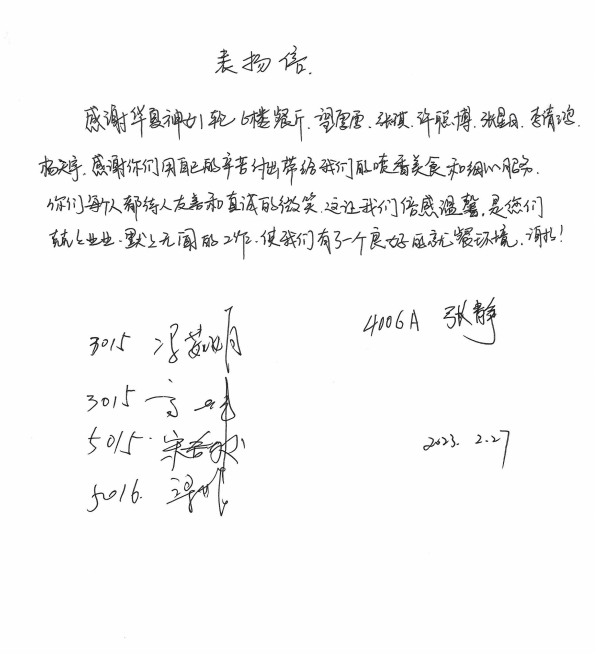 表扬信.
感谢华夏神女1轮6楼餐厅.梁雪雪.张琪.许聪博.张昱日.李倩鸿
杨宇.感谢你们用自己的辛苦付出带给我们的喷香美食和细心服务.
你们每个人都待人友善和真诚的微笑.这让我们倍感温馨.是您们
兢兢业业.默默无闻的工作.使我们有了一个良好的就餐环境.谢谢!
4006A 张静
3015 冯
3015 高
5015. 宋
5016. 梁
2023. 2.27